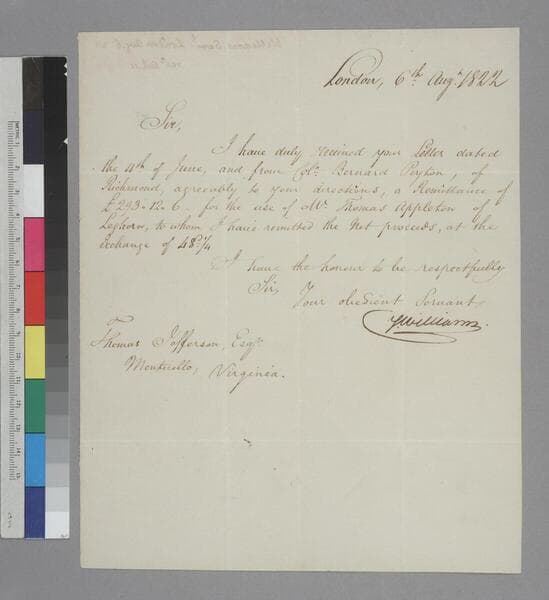 London, 6th Augt 1822
Sir,
I have duly received your Letter dated
the 4th of June, and from Col. Bernard Peyton, of
Richmond, agreeably to your directions, a Remittance of
£293.12.6 for the use of Mr Thomas Appleton of
Leghorn, to whom I have remitted the Net proceeds, at the
exchange of 48 1/4
I have the honour to be respectfully
Sir,
Your obedient Servant
Williams.
Thomas Jefferson, Esqr
Monticello, Virginia.